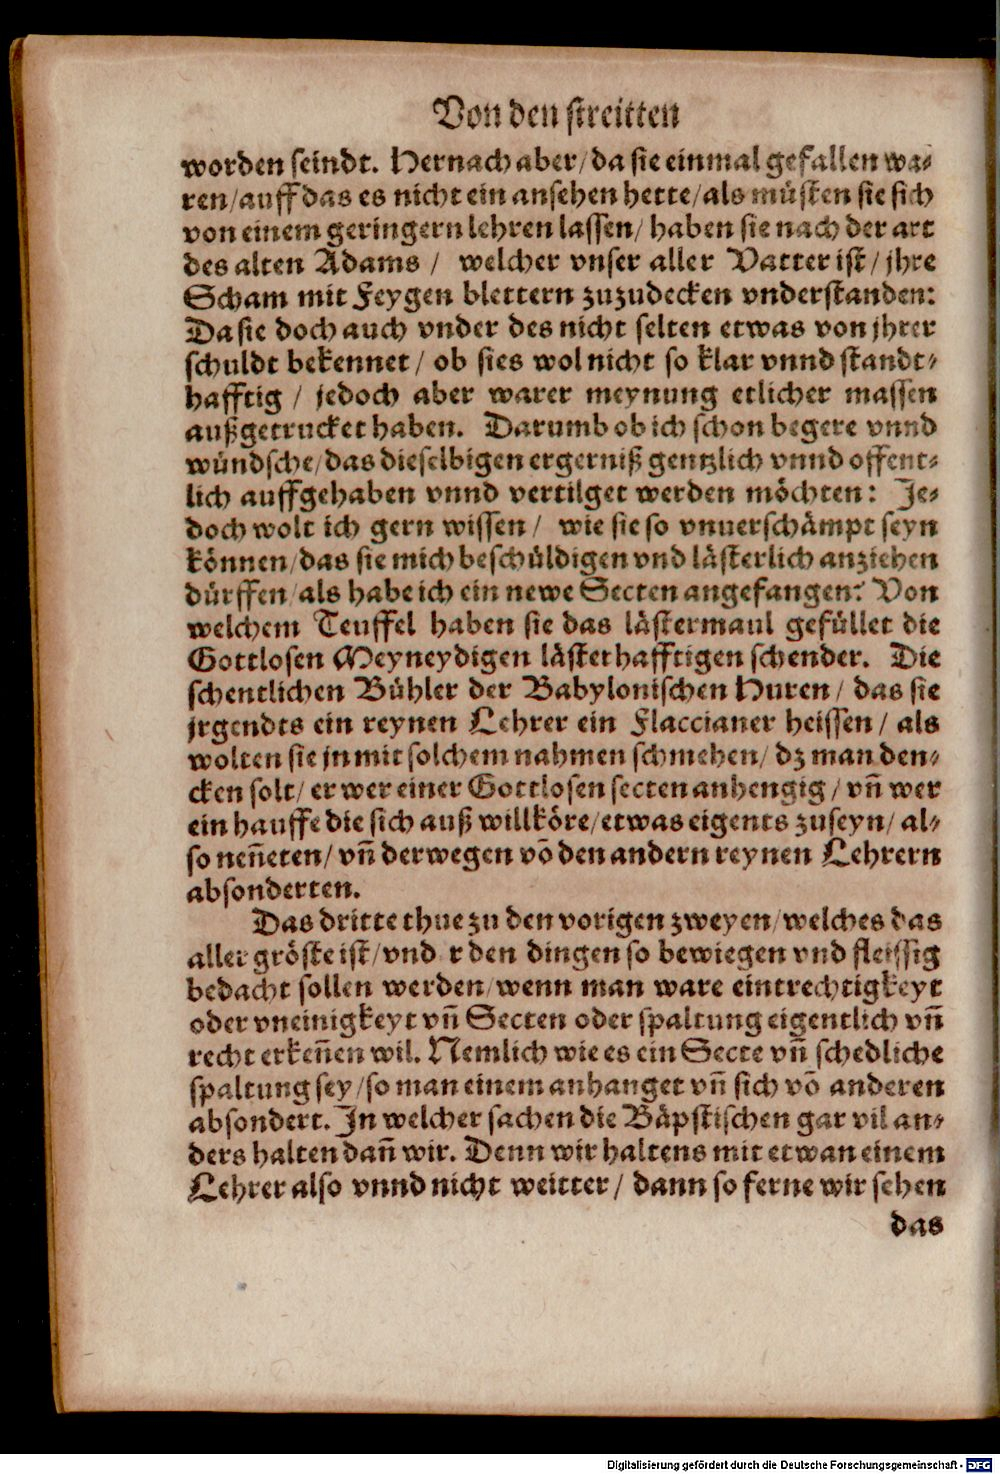 Von den streitten
worden seindt. Hernach aber/ da sie einmal gefallen wa-
ren/ auff das es nicht ein ansehen hette/ als müsten sie sich
von einem geringern lehren lassen/ haben sie nach der art
des alten Adams / welcher vnser aller Vatter ist/ jhre
Scham mit Feygen blettern zuzudecken vnderstanden:
Da sie doch auch vnder des nicht selten etwas von jhrer
schuldt bekennet/ ob sies wol nicht so klar vnnd standt-
hafftig / jedoch aber warer meynung etlicher massen
außgetrucket haben. Darumb ob ich schon begere vnnd
wündsche/ das dieselbigen ergerniß gentzlich vnnd offent-
lich auffgehaben vnnd vertilget werden möchten: Je-
doch wolt ich gern wissen/ wie sie so vnuerschämpt seyn
können/ das sie mich beschüldigen vnd lästerlich anziehen
dürffen/ als habe ich ein newe Secten angefangen: Von
welchem Teuffel haben sie das lästermaul gefüllet die
Gottlosen Meyneydigen lästethafftigen schender. Die
schentlichen Bühler der Babylonischen Huren/ das sie
jrgendts ein reynen Lehrer ein Flaccianer heissen/ als
wolten sie jn mit solchem nahmen schmehen/ dz man den-
cken solt/ er wer einer Gottlosen secten anhengig/ vñ wer
ein hauffe die sich auß willköre/ etwas eigents zuseyn/ al-
so neñeten/ vñ derwegen võ den andern reynen Lehrern
absonderten.
Das dritte thue zu den vorigen zweyen/ welches das
aller gröste ist/ vnd r den dingen so bewiegen vnd fleissig
bedacht sollen werden/ wenn man ware eintrechtigkeyt
oder vneinigkeyt vñ Secten oder spaltung eigentlich vñ
recht erkeñen wil. Nemlich wie es ein Secte vñ schedliche
spaltung sey/ so man einem anhanget vñ sich võ anderen
absondert. In welcher sachen die Bäpstischen gar vil an-
ders halten dañ wir. Denn wir haltens mit etwan einem
Lehrer also vnnd nicht weitter/ dann so ferne wir sehen
das
Digitalisierung gefördert durch die Deutsche Forschungsgemeinschaft - DFG